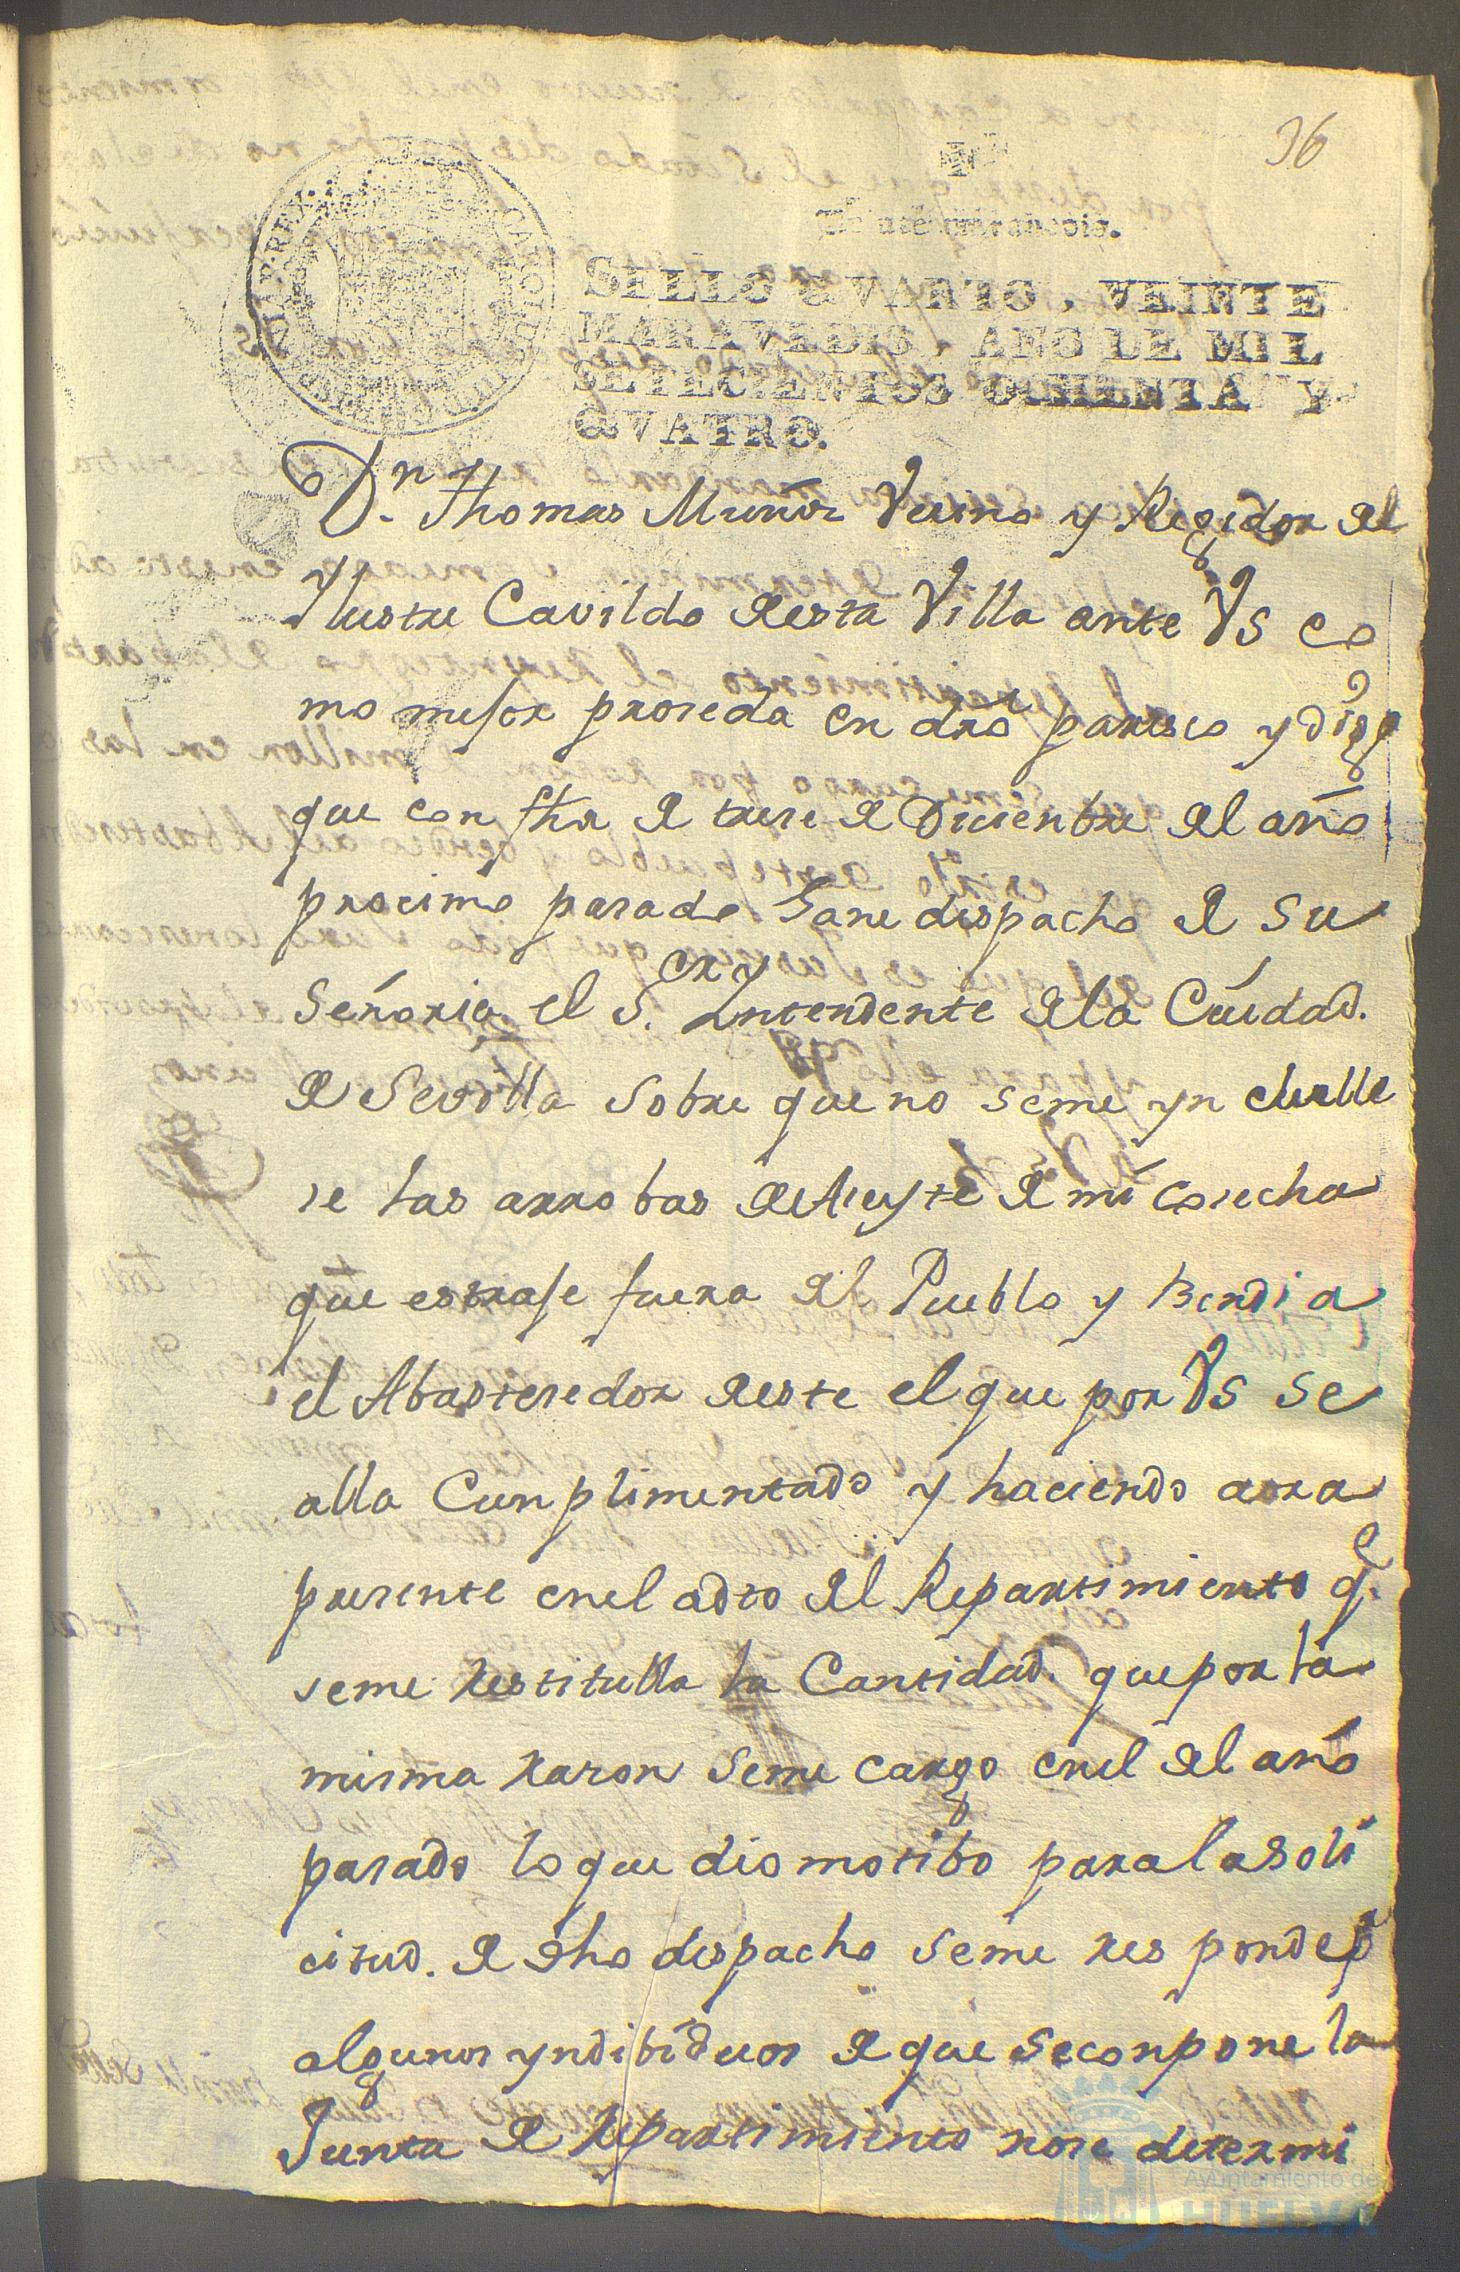 36
Veinte maravedis.
SELLO QVARTO, VEINTE
MARAVEDIS, AÑO DE MIL
SETECIENTOS OCHENTA Y
QVATRO.
Dn. Thomas Muñoz Vecino y Regidor del
Ylustre Cavildo desta Villa ante VS co
mo mejor proceda en dro paresco y digo
que con fha de trese de Diciembre del año
procimo pasado Gane despacho de Su
Señoria el Sor. Yntendente de la Ciudad.
de Sevilla sobre que no seme yn cluelle
se las arrobas de Aseyte de mi cosecha
que estraje fuera del Pueblo y Bendia
el Abasteredor deste el que por VS se
alla Cunplimentado y haciendo aora
presente enel acto del Repartimiento qe.
seme Restitulla la Cantidad. que por la
misma Razon seme cargo enel del año
pasado lo que dio motibo para la soli
citud. de dho despacho seme responde pr
algunos yndibiduos de que se conpone la
Junta de Repartimiento nose determi
Ayuntamiento de
HUELVA